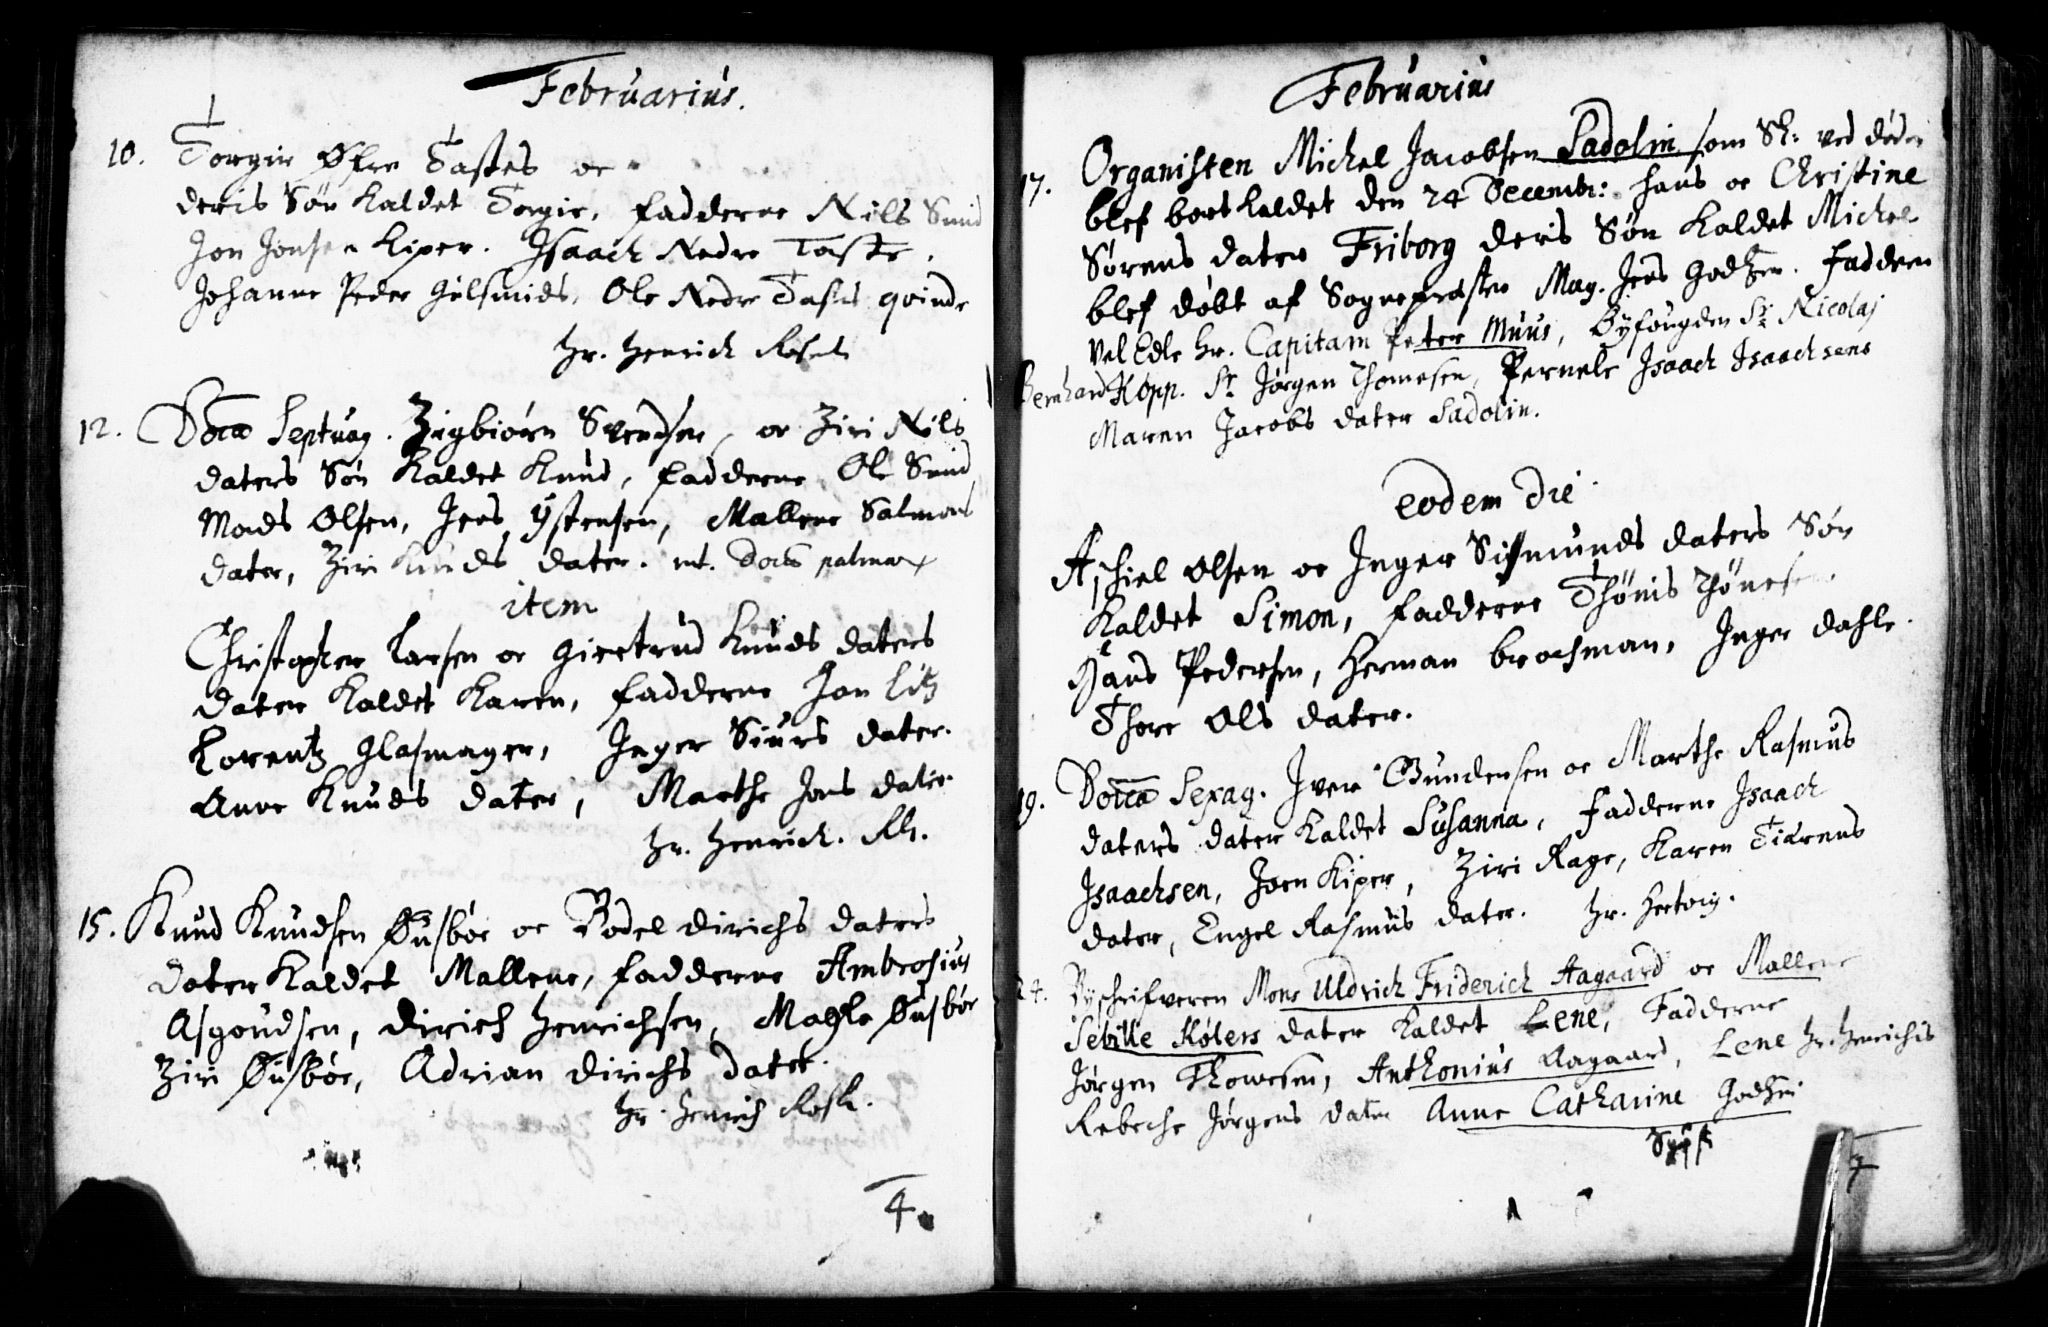 Februarius.
10. Torgir Øfre Tastes oc
deris Søn kaldet Torgir, fadderne Nils Smid
Jon Jonsen Kiper. Isaach Nedre Taste,
Johanne Peder Gulsmids, Ole Nedre Tastes qvinde
Hr. Henrich
12. Doīca Septuag. Zigbiørn Svendsen, oc Ziri Nils
daters Søn kaldet Knud, fadderne Ole Smid
Mads Olsen, Jens Ÿstensen, Mallene Salmons
dater, Ziri Knuds dater. int. palmar
item
Christopher Larsen oc Giertrud Knuds daters
dater kaldet Karen, fadderne Jon Litz
Lorentz Glasmager, Inger Siurs dater.
Anne Knuds dater, Marthe Jons dater
Hr. Henrich. Rh.
15. Knud Knudsen Øusbøe oc Bodel dirichs daters
dater kaldet Mallene, fadderne Ambrosius
Asgoudsen, dirich Henrichsen, Øusbøe
Ziri Øusbøe, Adrian dirichs dater.
Hr. Henrich Rosh.
4.
Februarius
17. Organisten Michel Jacobsen Sadolin som Sl: ved døden
blef bort kaldet den 24 Decembr: hans oc Christine
Sørens dater Friborg deris Søn kaldet Michel
blef døbt af Sognepresten Mag. Jens Godtzen. Fadderne
Vel Edle Hr. Capitain Peter Muus, Bÿfougden Sr Nicolaj
Bernhard Kopp. Sr Jørgen Thomesen, Pernele Isaach Isaachsens
Maren Jacobs dater Sadolin.
eodem die
Aschiel Olsen oc Inger Sismunds daters Søn
kaldet Simon, fadderne Thønis Thønesen
Hans Pedersen, Herman brochman, Inger dahle.
Thore Ols dater.
19. Doīca Sexag. Iver Gundersen oc Marthe Rasmus
daters dater kaldet Susanna, Fadderne Isaach
Isaachsen, Joen Kiper, Ziri Rage, Karen Tiørens
dater, Engel Rasmus dater. Hr. Hertvig.
24. Bÿschrifveren Mons Uldrich Friderich Aagaard oc Mallene
Sebille Kølers dater kaldet Lene, Fadderne
Jørgen Thomesen, Anthonius Aagaard, Lene Hr. Henrichs
Rebeche Jørgens dater Anne Catharine Godtzen
7